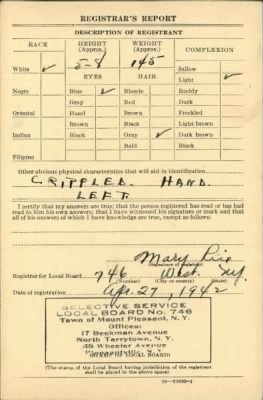 REGISTRAR'S REPORT
DESCRIPTION OF REGISTRANT
RACE HEIGHT (Approx.) WEIGHT (Approx.) COMPLEXION
White ✓ 5-8 145 Sallow
EYES HAIR Light ✓
Negro Blue ✓ Blonde Ruddy
Gray Red Dark
Oriental Hazel Brown Freckled
Brown Black Light brown
Indian Black Gray ✓ Dark brown
Bald Black
Filipino
Other obvious physical characteristics that will aid in identification
CRIPPLED HAND.
LEFT
I certify that my answers are true; that the person registered has read or has had
read to him his own answers; that I have witnessed his signature or mark and that
all of his answers of which I have knowledge are true, except as follows:
Mary
(Signature of registrar)
Registrar for Local Board 746 West. NY.
(Number) (City or county) (State)
Date of registration Apr. 27, 1942
SELECTIVE SERVICE
LOCAL BOARD No. 746
Town of Mount Pleasant, N.Y.
Offices:
17 Beekman Avenue
North Tarrytown, N.Y.
Wheeler Avenue
Pleasantville, N.Y.
(STAMP OF LOCAL BOARD)
(The stamp of the Local Board having jurisdiction of the registrant
shall be placed in the above space)